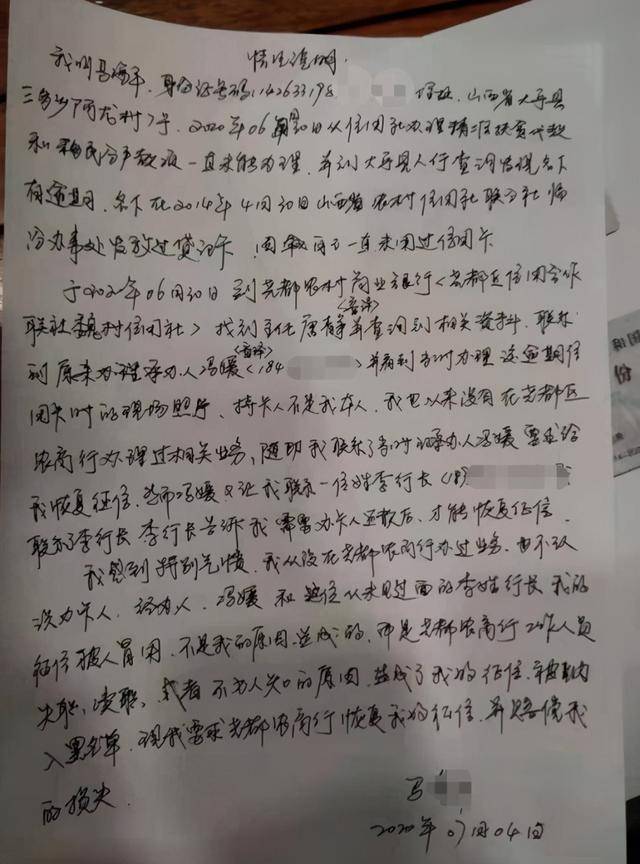 情况说明
我叫马海平,身份证号码:142633198 住址,山西省大宁县
三多乡阿龙村7号,2020年06月30日从信用社办理精准扶贫贷款
和 一直未能办理,并到大宁县人行查询发现名下
有逾期,名下在2014年4月30日山西省农村信用社联合社临
汾办事处发放过贷记卡,因 一直未用过信用卡
于2020年06月30日到尧都农村商业银行<尧都区信用合作
联社魏村信用社>找到主任唐静<音译>并查询到相关资料,联系
到原来办理承办人冯媛<音译><184 >并看到当时办理这逾期信
用卡时的现场照片,持卡人不是我本人,我也从来没有在尧都区
农商行办理过相关业务,随即我联系了当时的承办人冯媛要求给
我恢复征信,然而冯媛又让我联系一位姓李行长<189
联系了李行长李行长告诉我需要办卡人还款后,才能恢复征信.
我感到特别气愤,我从没在尧都农商行办过业务,也不认
识办卡人,经办人,冯媛和这位从未见过面的李姓行长,我的
征信被人冒用,不是我的原因造成的,却是尧都农商行工作人员
失职,渎职,或者不为人知的原因,造成了我的征信,被纳
入黑名单,现我要求尧都农商行恢复我的征信,并赔偿我
的损失.
马
2020年07月04日